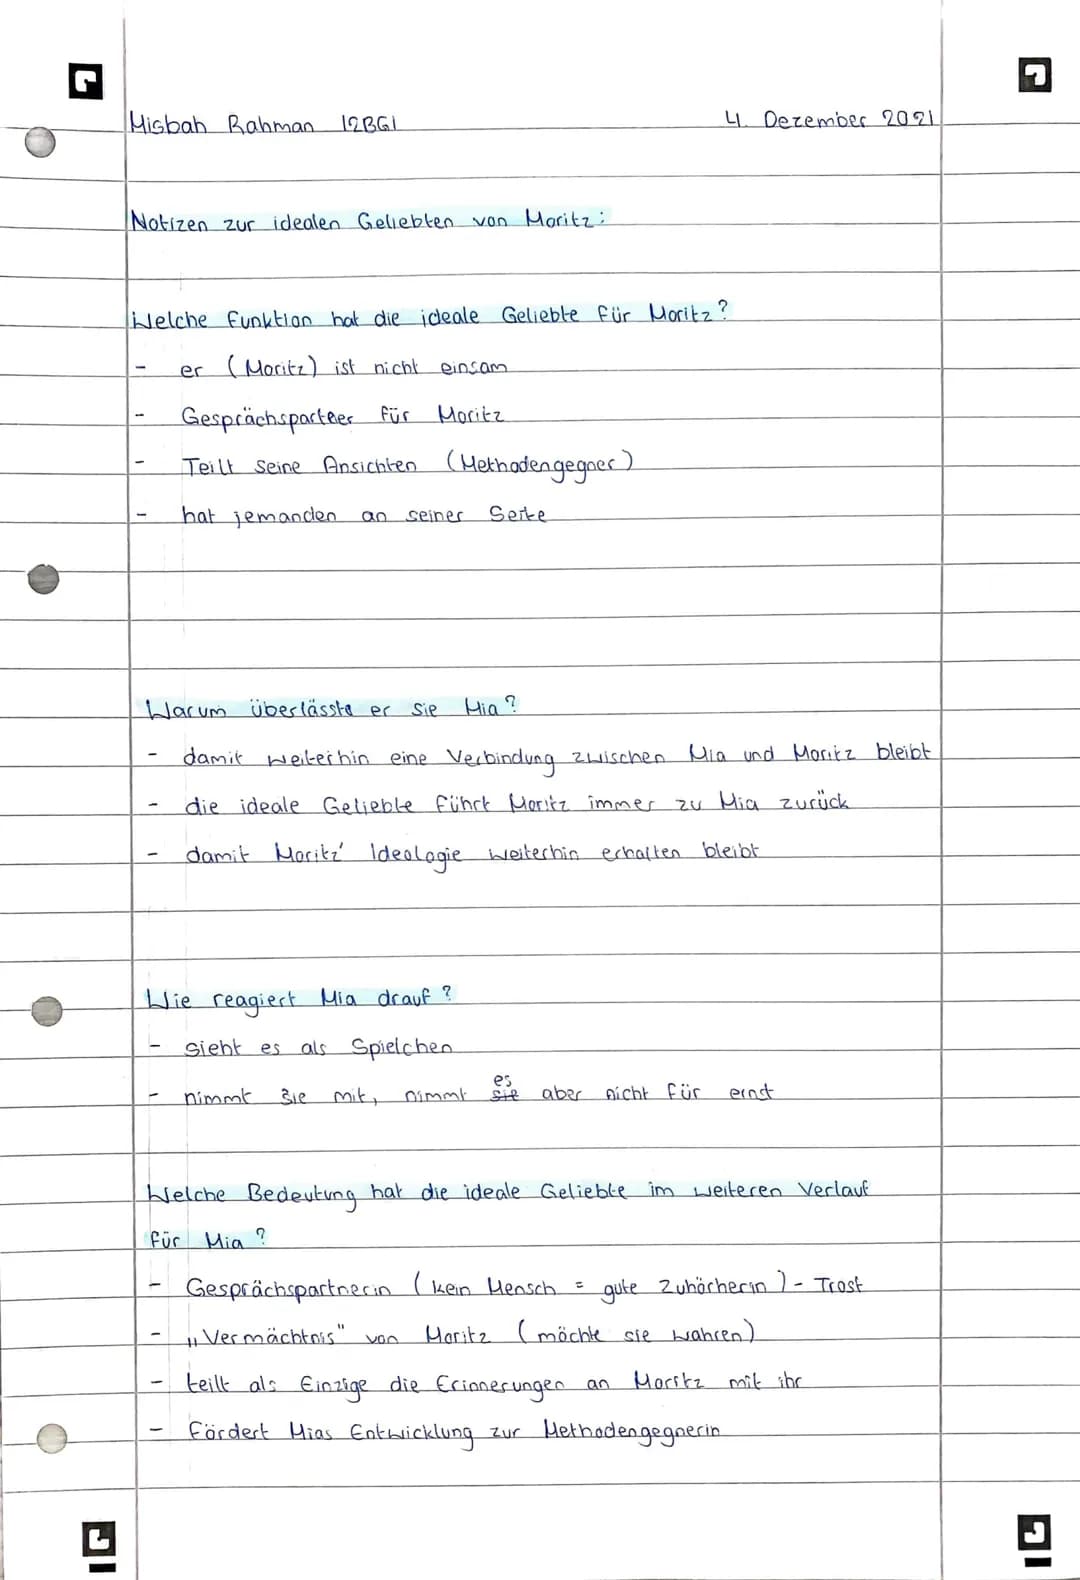 Misbah Rahman 12BG1
4. Dezember 2021
Notizen zur idealen Geliebten von Moritz:
Welche Funktion hat die ideale Geliebte für Moritz?
- er (Moritz) ist nicht einsam
- Gesprächsparteer für Moritz
- Teilt seine Ansichten (Methodengegner)
- hat jemanden an seiner Seite
Warum überlässte er sie Mia?
- damit weiterhin eine Verbindung zwischen Mia und Moritz bleibt
- die ideale Geliebte führt Moritz immer zu Mia zurück
- damit Moritz' Ideologie weiterhin erhalten bleibt
Wie reagiert Mia drauf?
- sieht es als Spielchen
- nimmt sie mit, nimmt sie es aber nicht für ernst
Welche Bedeutung hat die ideale Geliebte im weiteren Verlauf
für Mia?
- Gesprächspartnerin (kein Mensch = gute Zuhörherin) - Trost
- „Vermächtnis" von Moritz (möchte sie wahren)
- teilt als Einzige die Erinnerungen an Moritz mit ihr
- Fördert Mias Entwicklung zur Methodengegnerin